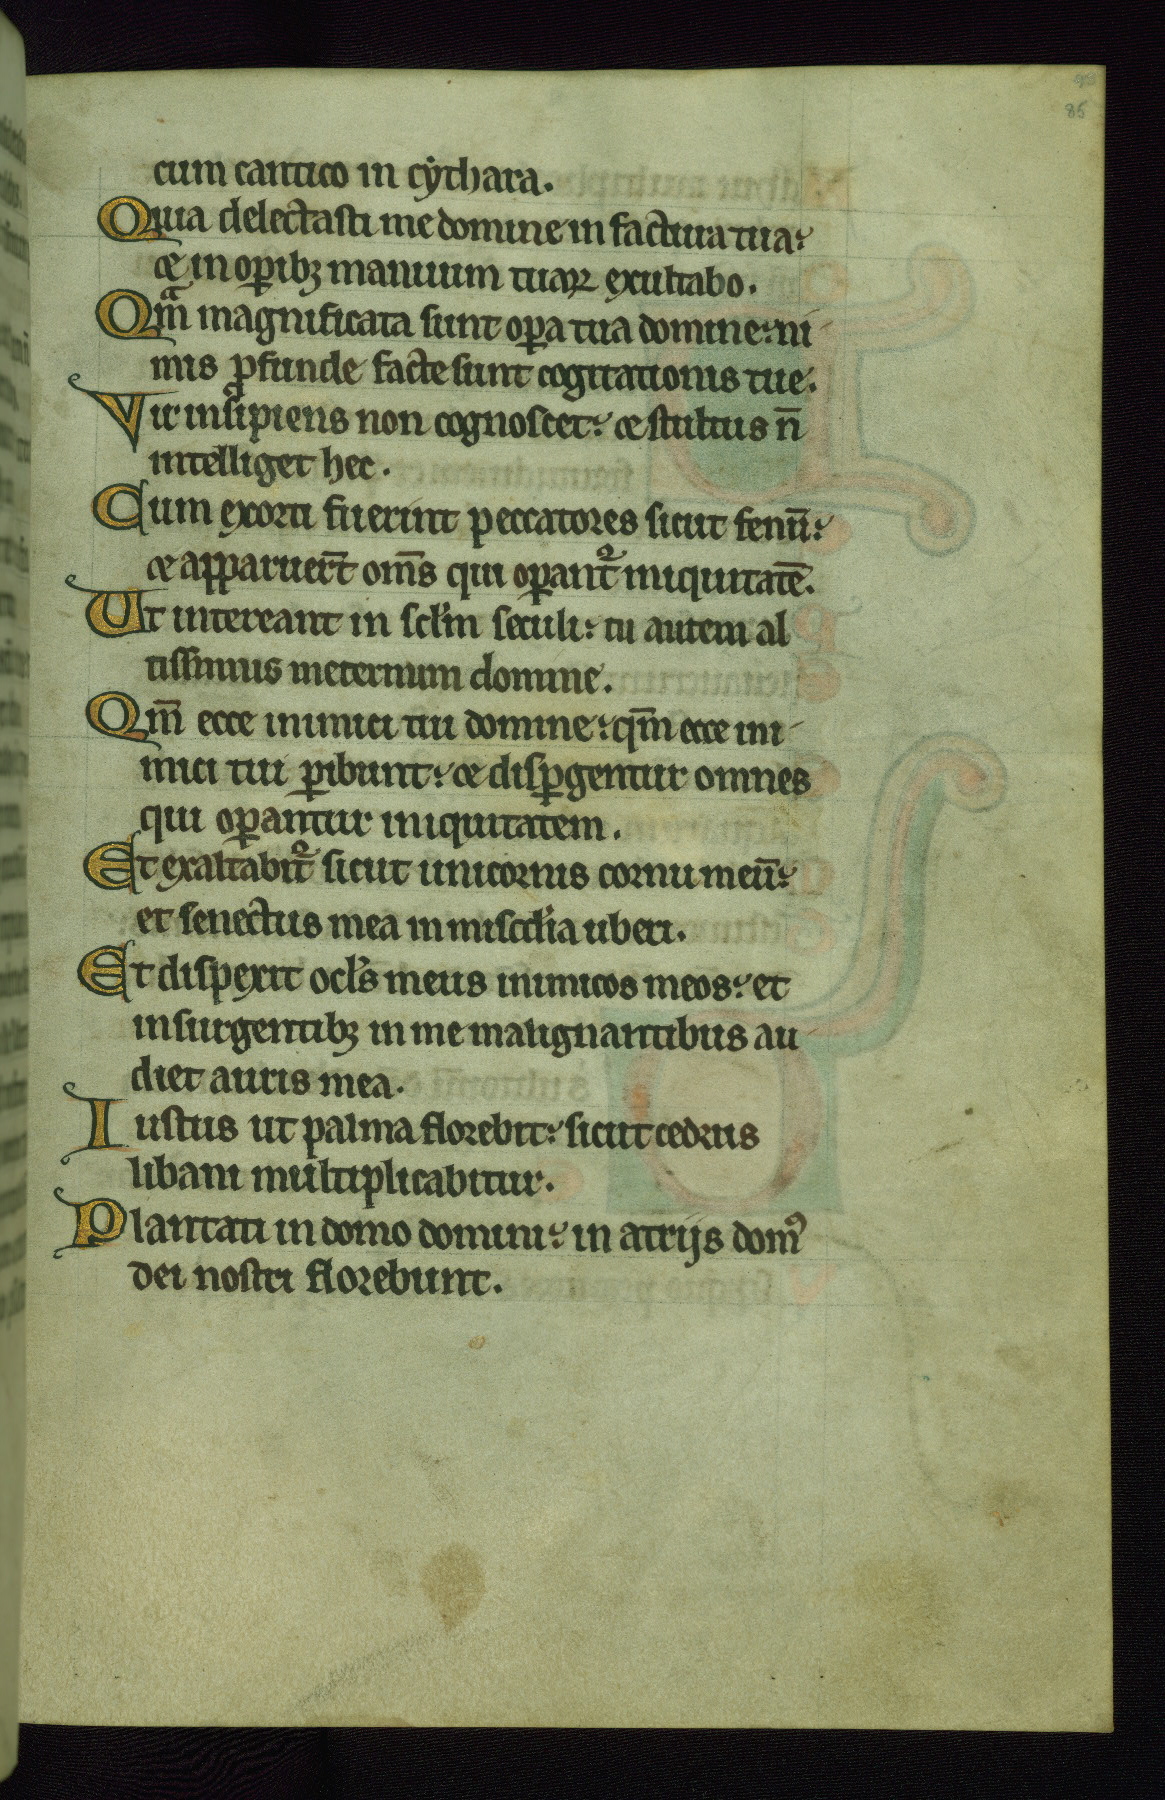 85
cum cantico in cẏthara.
Quia delectasti me domine in factura tua:
& in op̱ibꝫ manuum tuaꝝ exultabo.
Qm̄ magnificata sunt op̱a tua domine: ni
mis ꝓfunde facte sunt cogitationis tue.
Vir insipiens non cognoscet: & stultus n̄
intelliget hec.
Cum exorti fuerint peccatores sicut fenū:
& apparuer̄t om̄s qui oꝑant᷑ iniquitatē.
Ut intereant in scl'm seculi: tu autem al
tissimus ineternum domine.
Qm̄ ecce inimici tui domine: qm̄ ecce ini
mici tui ꝑibunt: & disꝑgentur omnes
qui oꝑantur iniquitatem.
Et exaltabit᷑ sicut unicornis cornu meū:
et senectus mea in miscd'ia uberi.
Et dispexit ocl's meus inimicos meos: et
insurgentibꝫ in me malignantibus au
diet auris mea.
Iustus ut palma florebit: sicut cedrus
libani multiplicabitur.
Plantati in domo domini: in atrijs domꝰ
dei nostri florebunt.